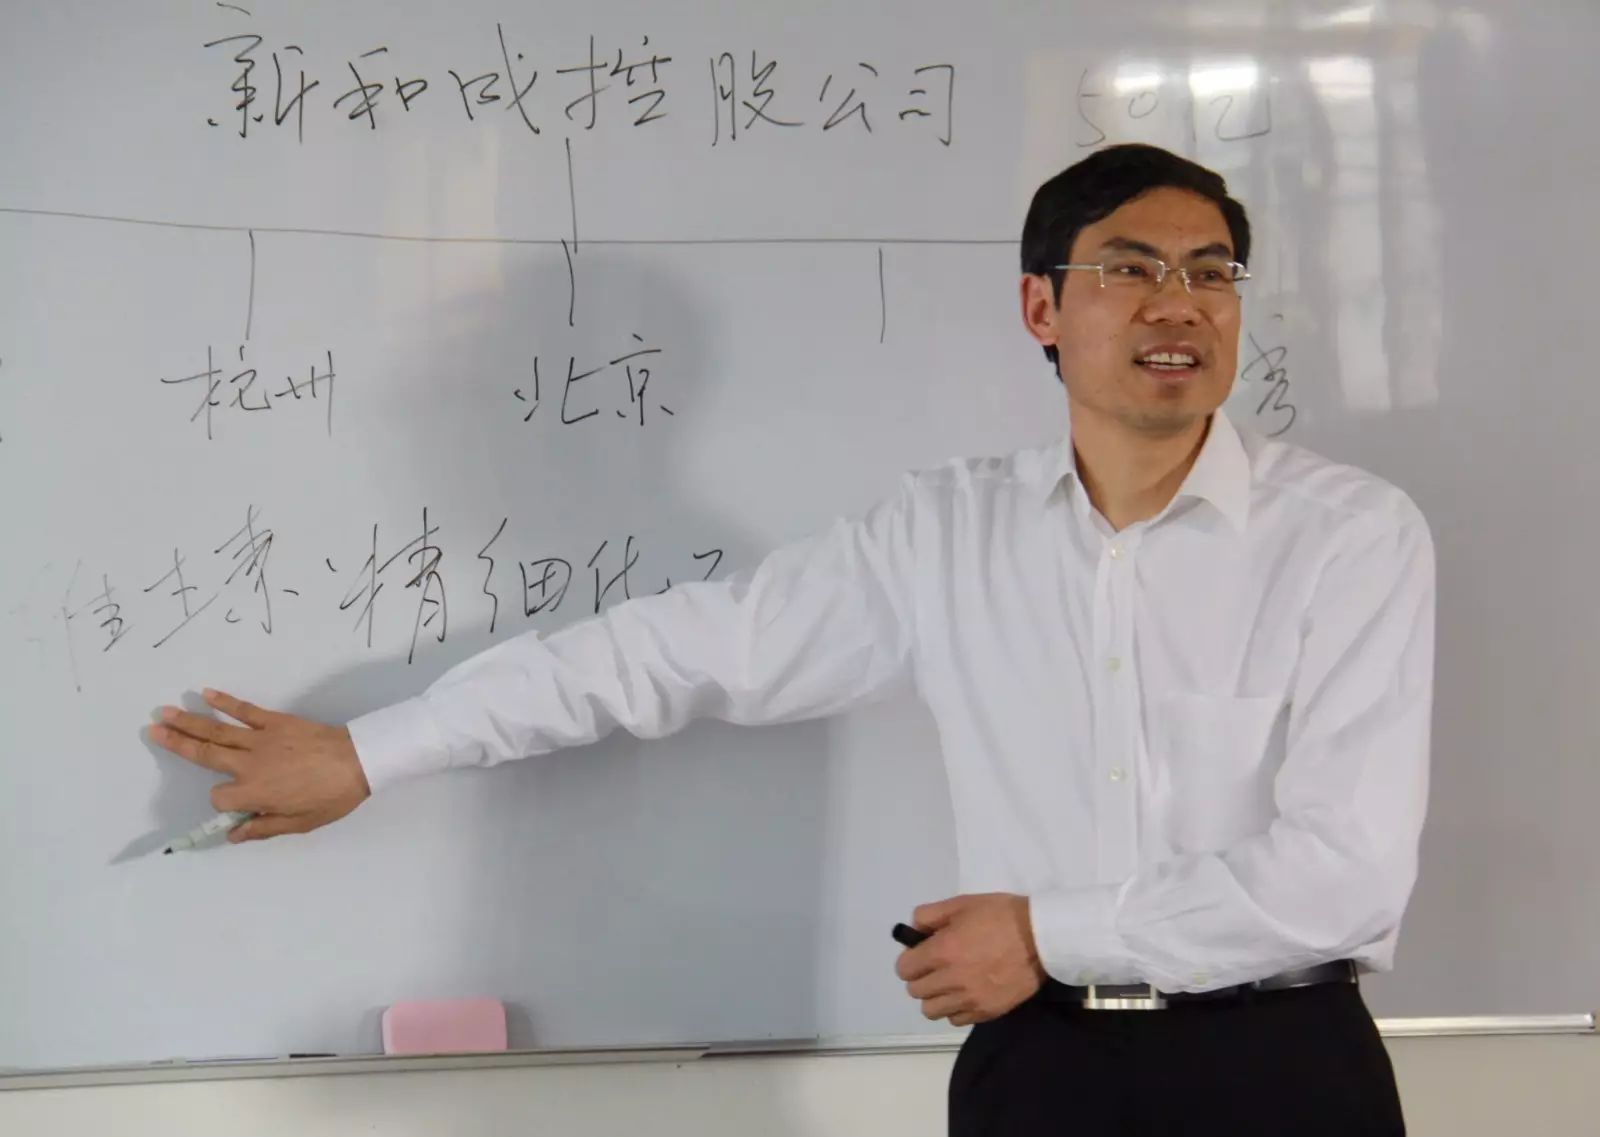 新和成控股公司 50亿
杭州 北京
维生素、精细化工